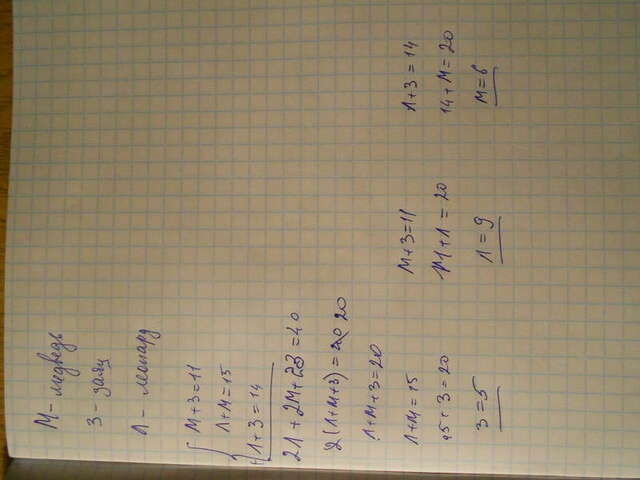 М - медведь
З - заяц
Л - леопард
М + З = 11
Л + М = 15
+ Л + З = 14
2Л + 2М + 2З = 40
2(Л + М + З) = 40 20
Л + М + З = 20
Л + М = 15
15 + З = 20
З = 5
М + З = 11
11 + Л = 20
Л = 9
Л + З = 14
14 + М = 20
М = 6